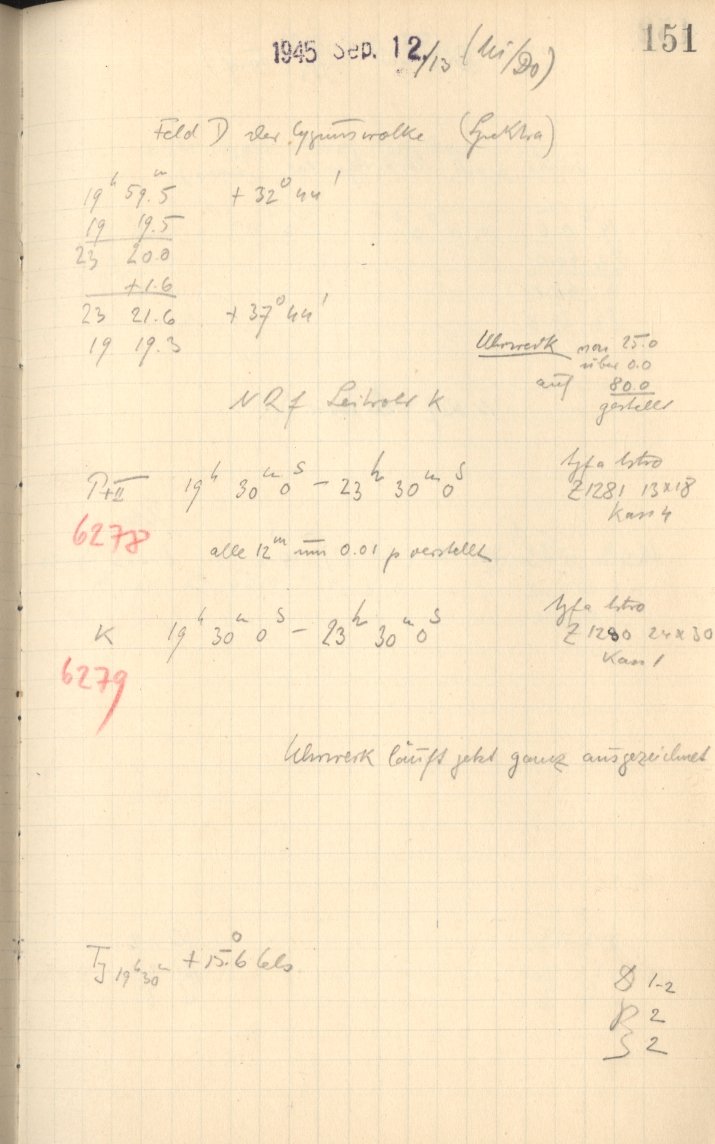 151
1945 Sep. 12./13 (Mi/Do)
Feld D der Cygnuswolke (Spektra)
19h 59m.5 + 32° 44'
19 19.5
23 20.0
+1.6
23 21.6 + 37° 44'
19 19.3
Uhrwerk von 25.0
über 0.0
auf 80.0
gestellt
K
P+II 19h 30m 0s – 23h 30m 0s
6278
Agfa Astro
Z1281 13x18
Kass 4
alle 12m um 0.01 p verstellt
K 19h 30m 0s – 23h 30m 0s
6279
Agfa Astro
Z 1280 24x30
Kass 1
Uhrwerk läuft jetzt ganz ausgezeichnet
19h30m +15.°6 Cels
1-2
2
2